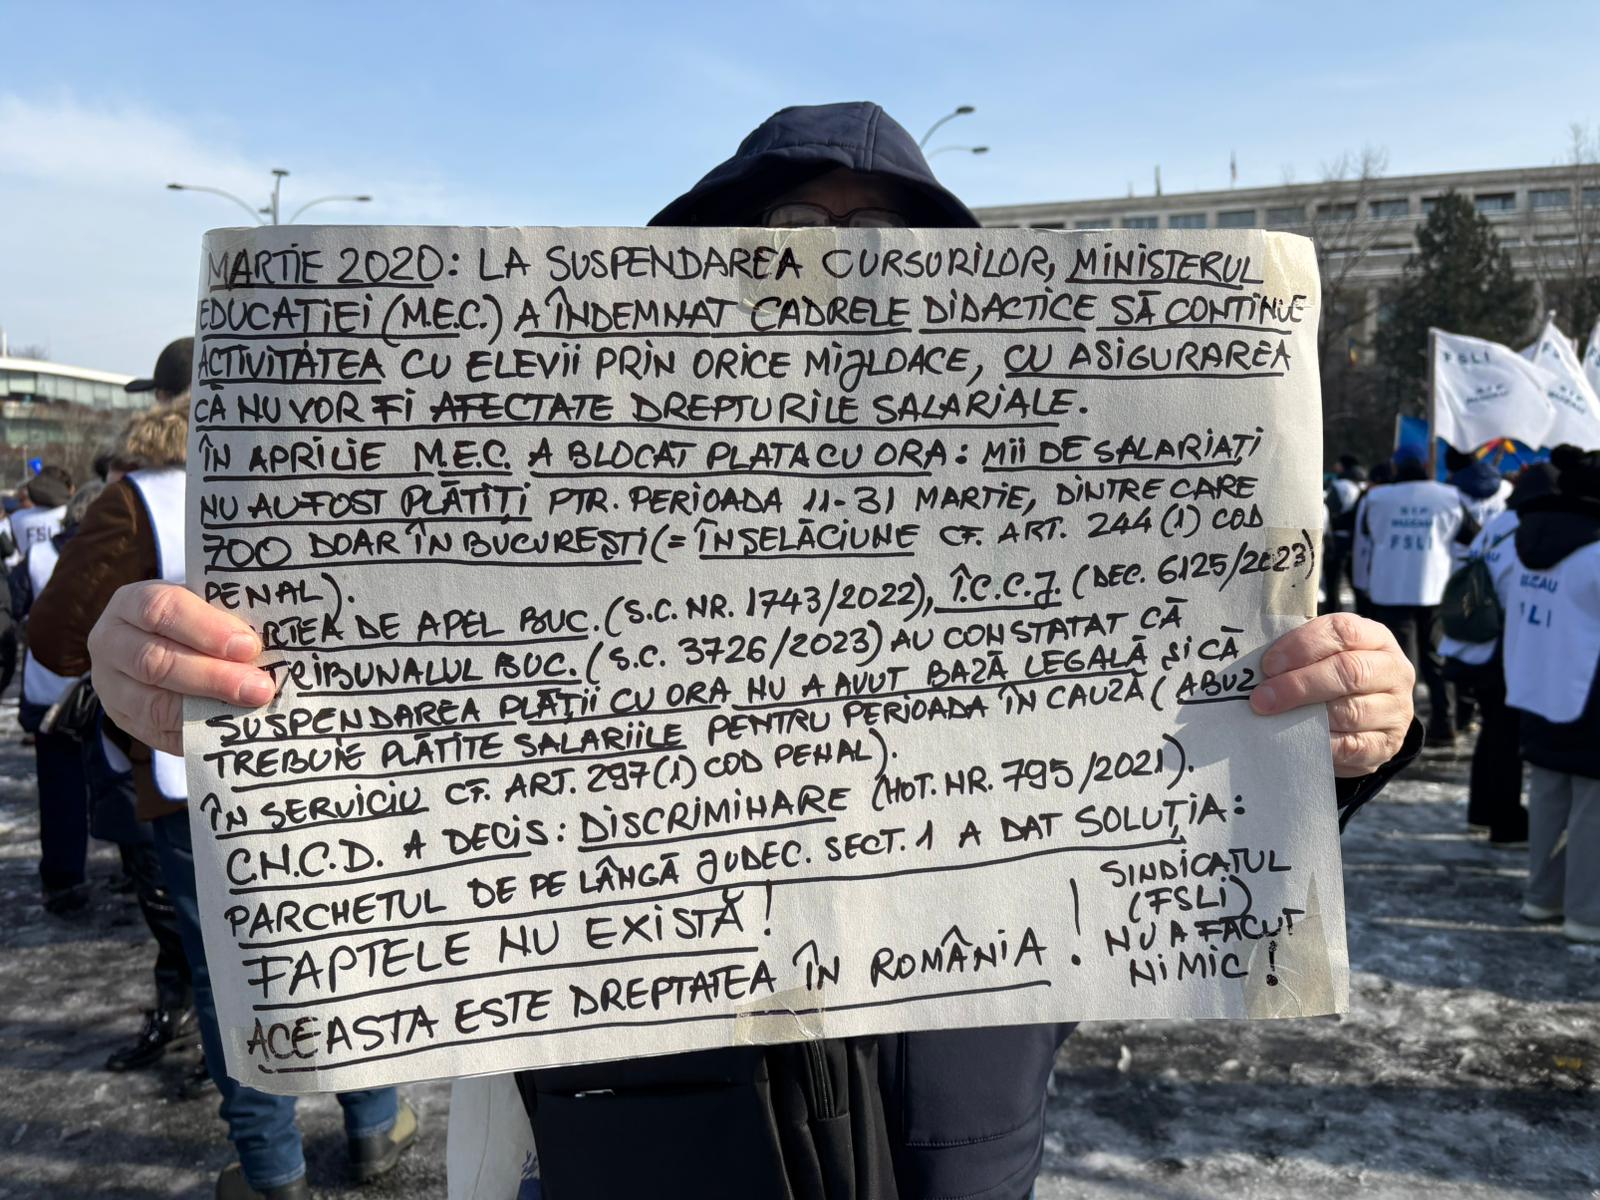 MARTIE 2020: LA SUSPENDAREA CURSURILOR, MINISTERUL
EDUCAȚIEI (M.E.C.) A ÎNDEMNAT CADRELE DIDACTICE SĂ CONTINUE
ACTIVITATEA CU ELEVII PRIN ORICE MIJLOACE, CU ASIGURAREA
CĂ NU VOR FI AFECTATE DREPTURILE SALARIALE.
ÎN APRILIE M.E.C. A BLOCAT PLATA CU ORA: MII DE SALARIAȚI
NU AU FOST PLĂTIȚI PTR. PERIOADA 11-31 MARTIE, DINTRE CARE
700 DOAR ÎN BUCUREȘTI (= ÎNȘELĂCIUNE CF. ART. 244 (1) COD
PENAL).
RTEA DE APEL BUC. (S.C. NR. 1743/2022), Î.C.C.J. (DEC. 6125/2023)
TRIBUNALUL BUC. (S.C. 3726/2023) AU CONSTATAT CĂ
SUSPENDAREA PLĂȚII CU ORA NU A AVUT BAZĂ LEGALĂ ȘI CĂ
TREBUIE PLĂTITE SALARIILE PENTRU PERIOADA ÎN CAUZĂ (ABUZ
ÎN SERVICIU CF. ART. 297 (1) COD PENAL).
C.N.C.D. A DECIS: DISCRIMINARE (HOT. NR. 795/2021).
PARCHETUL DE PE LÂNGĂ JUDEC. SECT. 1 A DAT SOLUȚIA:
FAPTELE NU EXISTĂ!
ACEASTA ESTE DREPTATEA ÎN ROMÂNIA!
SINDICATUL
(FSLI)
NU A FĂCUT
NIMIC!
FSLI
FSL
FSLI